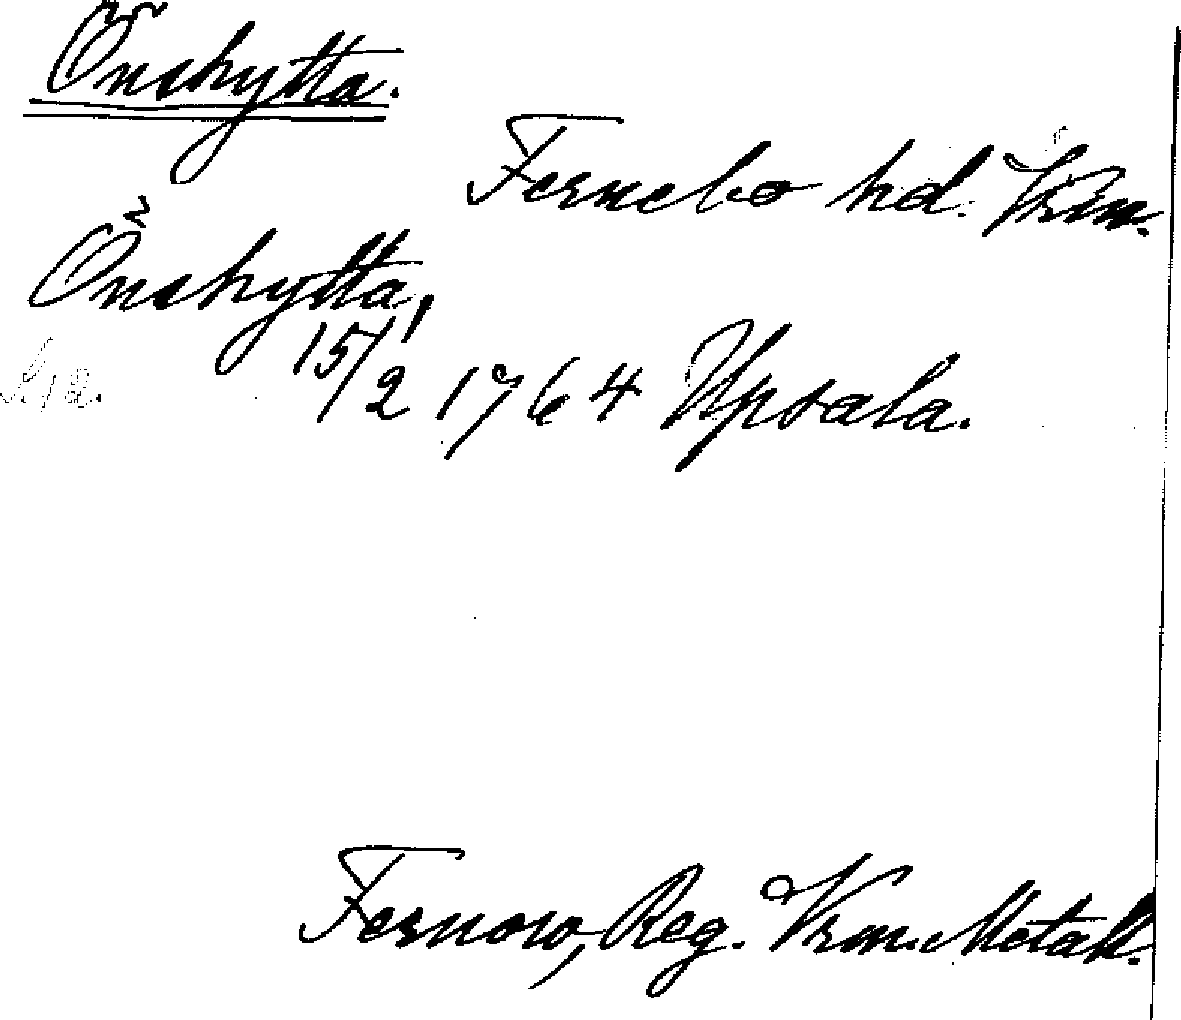 Önshytta.
Fernebo hd. Vrm.
Önshytta,
15/2 1764 Upsala.
Fernow, Reg. Vrm. Metall.